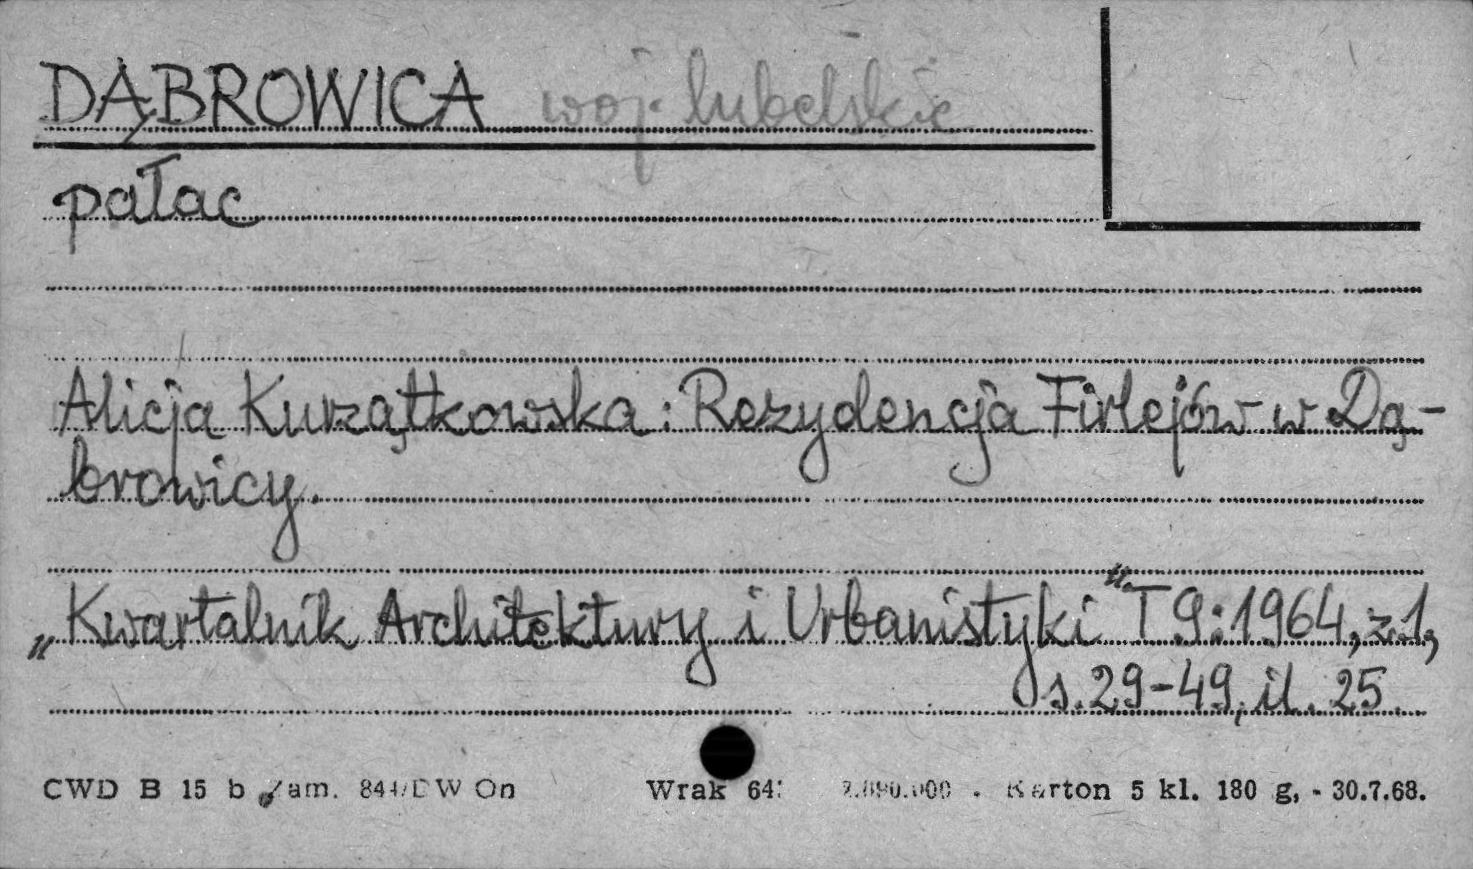 DĄBROWICA woj. lubelskie
pałac
Alicja Kurzątkowska: Rezydencja Firlejów w Dą-
browicy.
„Kwartalnik Architektury i Urbanistyki" T 9: 1964, z.1,
s. 29-49, il. 25.
CWD B 15 b Zam. DW On Wrak Karton 5 kl. 180 g, - 30.7.68.